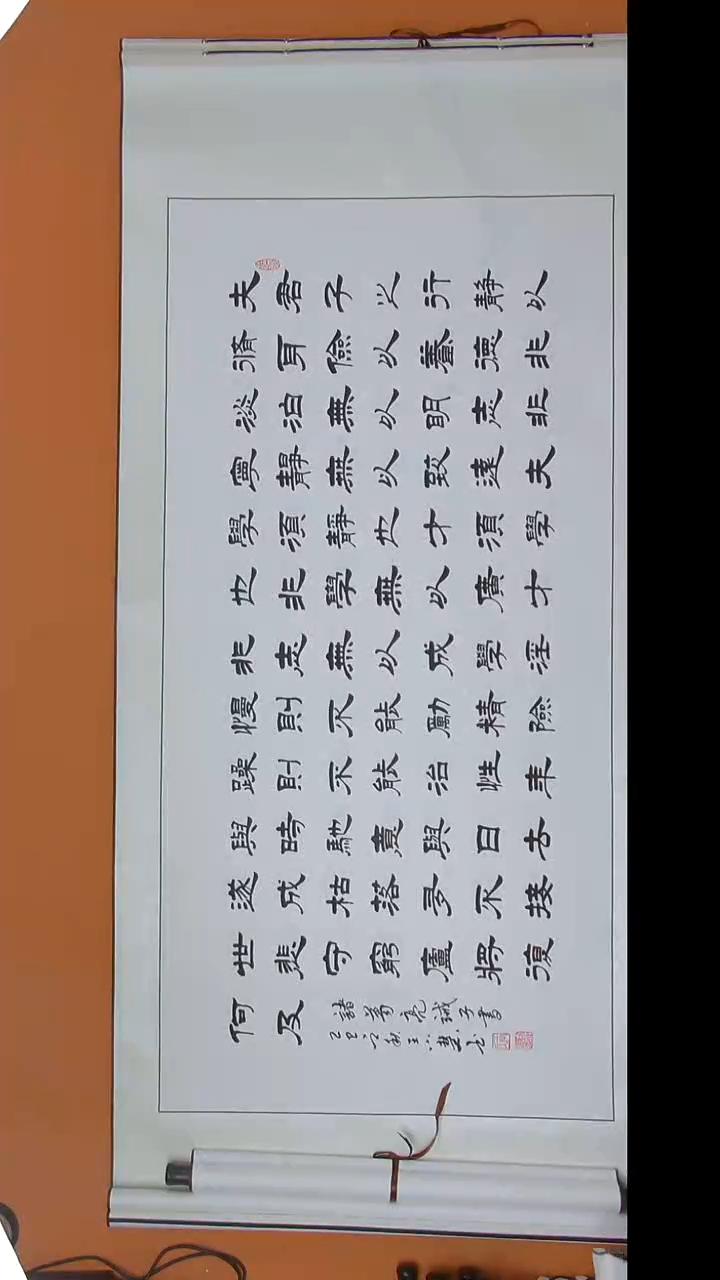 夫君子之行靜以
脩身儉以養德非
淡泊無以明志非
寧靜無以致遠夫
學須靜也才須學
也非學無以廣才
非志無以成學淫
慢則不能勵精險
躁則不能治性年
與時馳意與日去
遂成枯落多不接
世悲守窮廬將復
何及
諸葛亮誡子書
乙巳之秋王